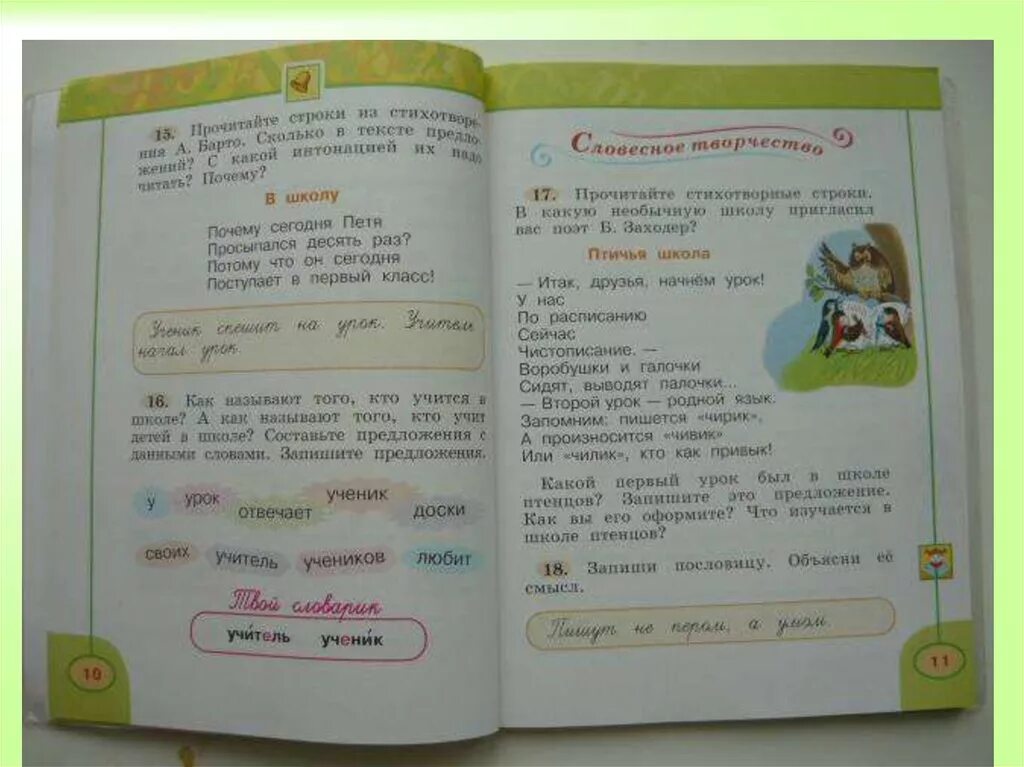 15. Прочитайте строки из стихотворе-
ния А. Барто. Сколько в тексте предло-
жений? С какой интонацией их надо
читать? Почему?
В школу
Почему сегодня Петя
Просыпался десять раз?
Потому что он сегодня
Поступает в первый класс!
Ученик спешит на урок. Учитель
начал урок.
16. Как называют того, кто учится в
школе? А как называют того, кто учит
детей в школе? Составьте предложения с
данными словами. Запишите предложения.
у урок отвечает ученик доски
своих учитель учеников любит
Твой словарик
учи́тель учени́к
10
Словесное творчество
17. Прочитайте стихотворные строки.
В какую необычную школу пригласил
вас поэт Б. Заходер?
Птичья школа
— Итак, друзья, начнём урок!
У нас
По расписанию
Сейчас
Чистописание. —
Воробушки и галочки
Сидят, выводят палочки...
— Второй урок — родной язык.
Запомним: пишется «чирик»,
А произносится «чивик»
Или «чилик», кто как привык!
Какой первый урок был в школе
птенцов? Запишите это предложение.
Как вы его оформите? Что изучается в
школе птенцов?
18. Запиши пословицу. Объясни её
смысл.
Пишут не пером, а умом.
11